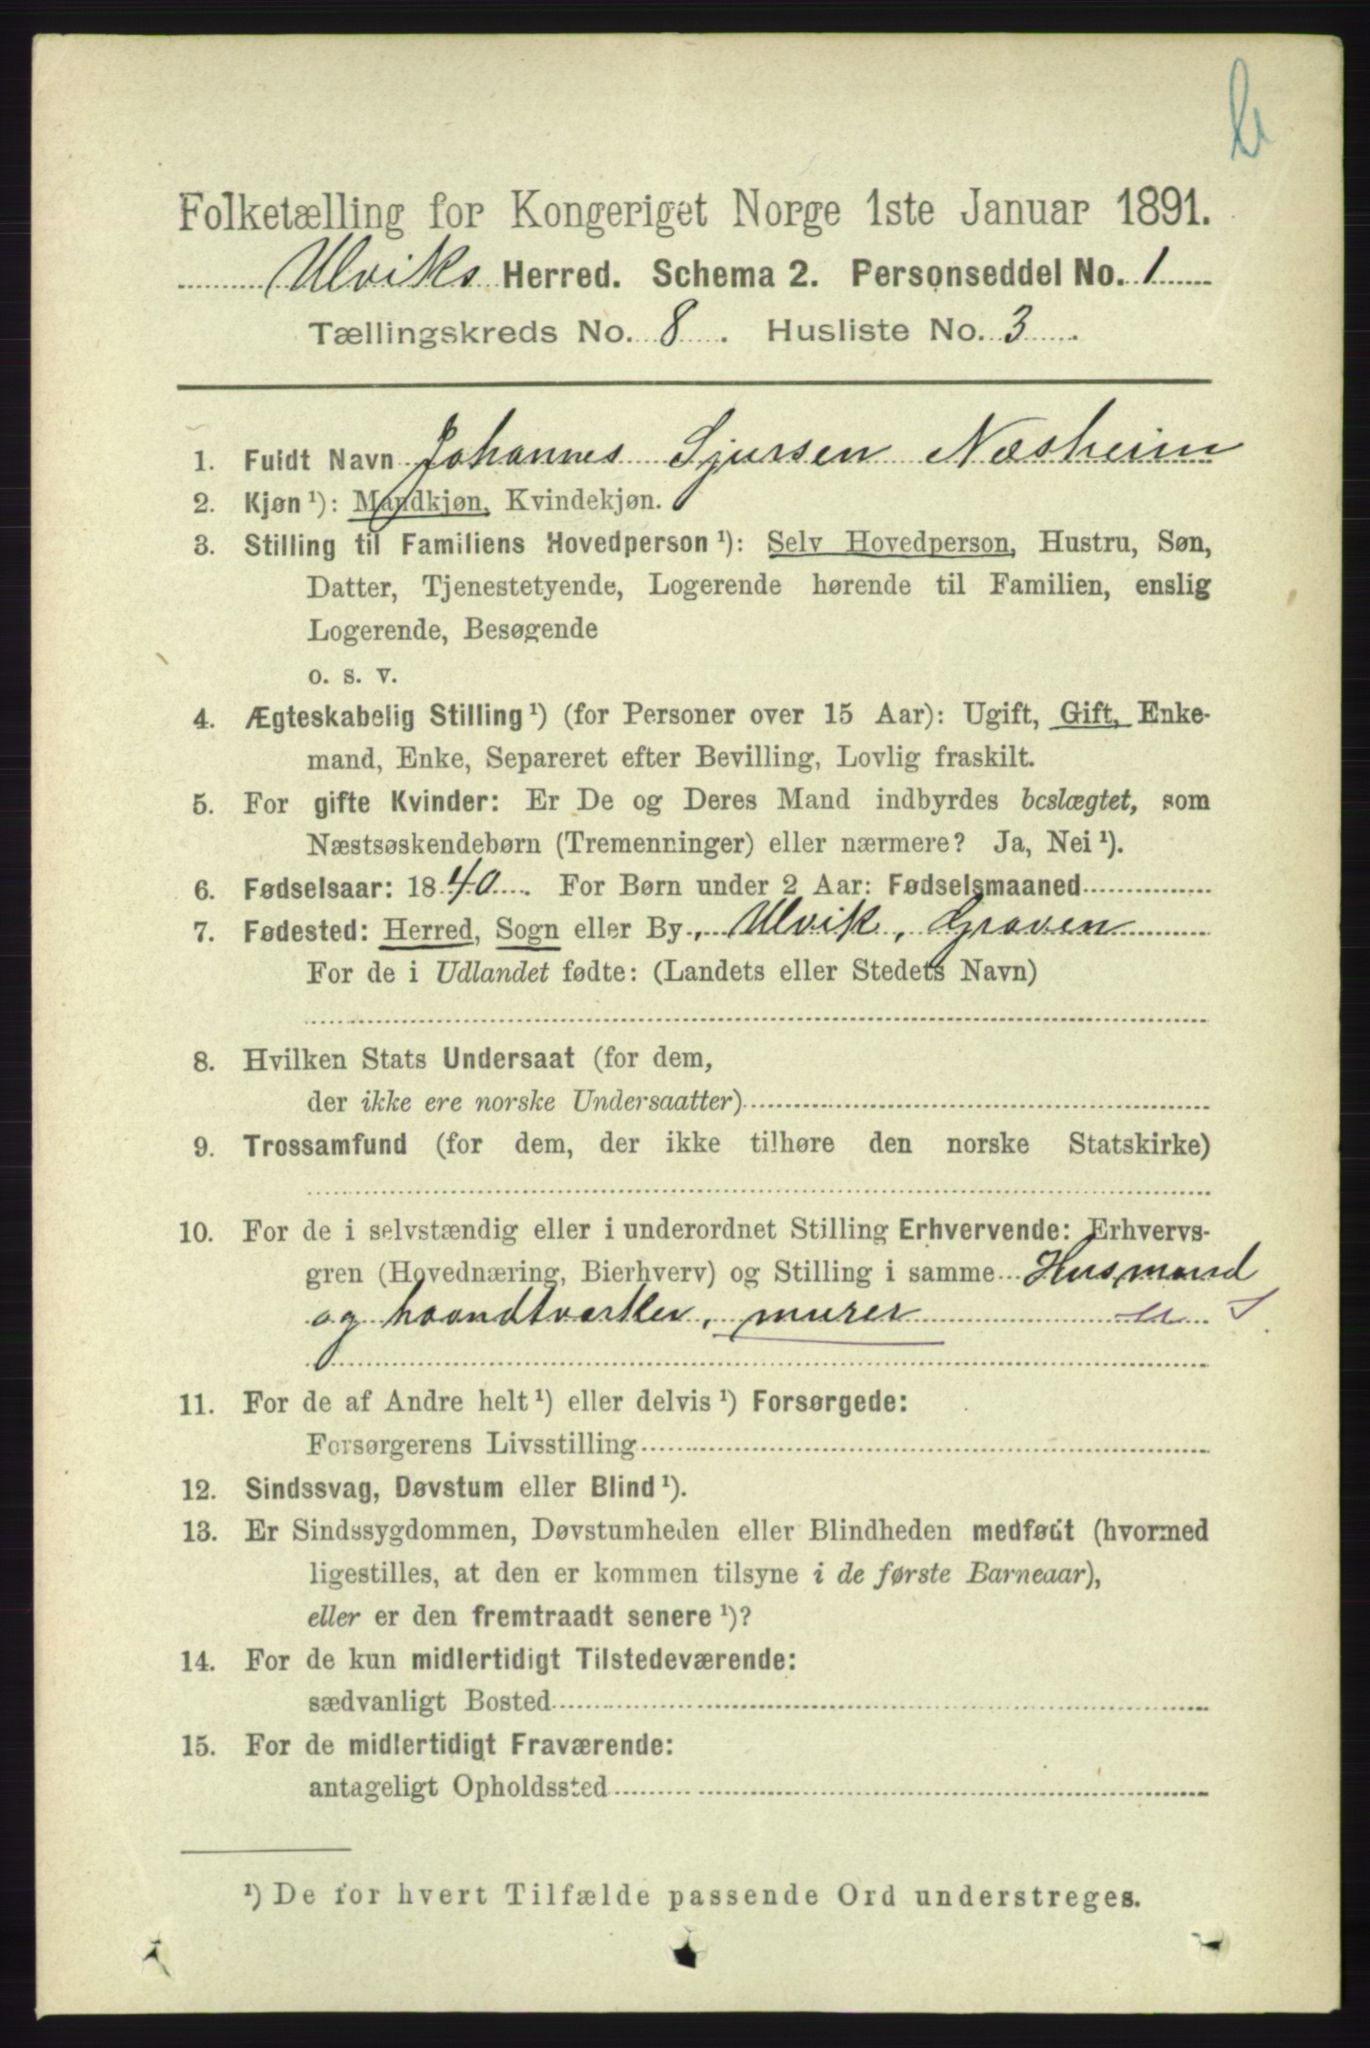 Folketælling for Kongeriget Norge 1ste Januar 1891.
Ulviks Herred. Schema 2. Personseddel No. 1
Tællingskreds No. 8. Husliste No. 3.
1. Fuldt Navn Johannes Sjursen Næsheim
2. Kjøn ¹): Mandkjøn, Kvindekjøn.
3. Stilling til Familiens Hovedperson ¹): Selv Hovedperson, Hustru, Søn,
Datter, Tjenestetyende, Logerende hørende til Familien, enslig
Logerende, Besøgende
o. s. v.
4. Ægteskabelig Stilling ¹) (for Personer over 15 Aar): Ugift, Gift, Enke-
mand, Enke, Separeret efter Bevilling, Lovlig fraskilt.
5. For gifte Kvinder: Er De og Deres Mand indbyrdes beslægtet, som
Næstsøskendebørn (Tremenninger) eller nærmere? Ja, Nei ¹).
6. Fødselsaar: 1840. For Børn under 2 Aar: Fødselsmaaned
7. Fødested: Herred, Sogn eller By, Ulvik, Graven
For de i Udlandet fødte: (Landets eller Stedets Navn)
8. Hvilken Stats Undersaat (for dem,
der ikke ere norske Undersaatter)
9. Trossamfund (for dem, der ikke tilhøre den norske Statskirke)
10. For de i selvstændig eller i underordnet Stilling Erhvervende: Erhvervs-
gren (Hovednæring, Bierhverv) og Stilling i samme Husmand
og haandtværker, murer
11. For de af Andre helt ¹) eller delvis ¹) Forsørgede:
Forsørgerens Livsstilling
12. Sindssvag, Døvstum eller Blind ¹).
13. Er Sindssygdommen, Døvstumheden eller Blindheden medfødt (hvormed
ligestilles, at den er kommen tilsyne i de første Barneaar),
eller er den fremtraadt senere ¹)?
14. For de kun midlertidigt Tilstedeværende:
sædvanligt Bosted
15. For de midlertidigt Fraværende:
antageligt Opholdssted
¹) De for hvert Tilfælde passende Ord understreges.